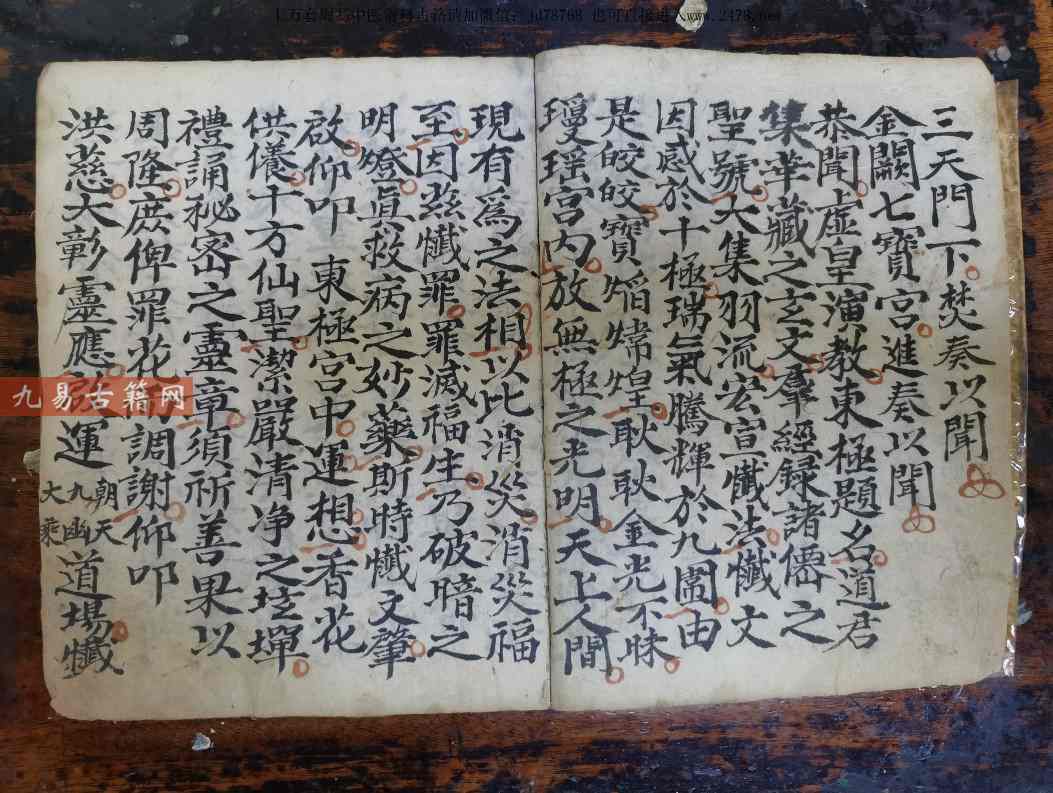 也可直接进入www.2478.net
三天門下焚奏以聞
金闕七寶宮進奏以聞
恭聞虛皇演教東極題名道君
集華藏之玄文羣經録諸僊之
聖號大集羽流宏宣懺法懺文
因感於十極瑞氣騰輝於九圍由
是皎皎寶焰煌耿耿金光不昧
瓊瑶宫内放無極之光明天上人間
現有為之法相以此消災消災福
至因兹懺罪罪滅福生乃破暗之
明燈真救病之妙藥斯時懺文肇
啟仰叩 東極宮中運想香花
供養十方仙聖潔嚴清净之坛墠
禮誦秘密之靈章須祈善果以
周隆庶俾罪花調謝仰叩
洪慈大彰靈應運 朝天 九幽 大乘 道場懺
九易古籍网